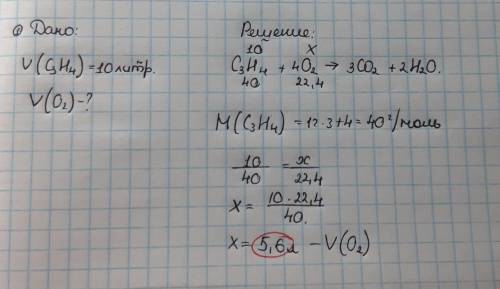 ① Дано:
V(C₃H₄) = 10 литр.
V(O₂) - ?
Решение:
10 x
C₃H₄ + 4O₂ → 3CO₂ + 2H₂O.
40 22,4
M(C₃H₄) = 12·3+4 = 40 г/моль
10/40 = x/22,4
x = 10·22,4/40.
x = 5,6 л – V(O₂)